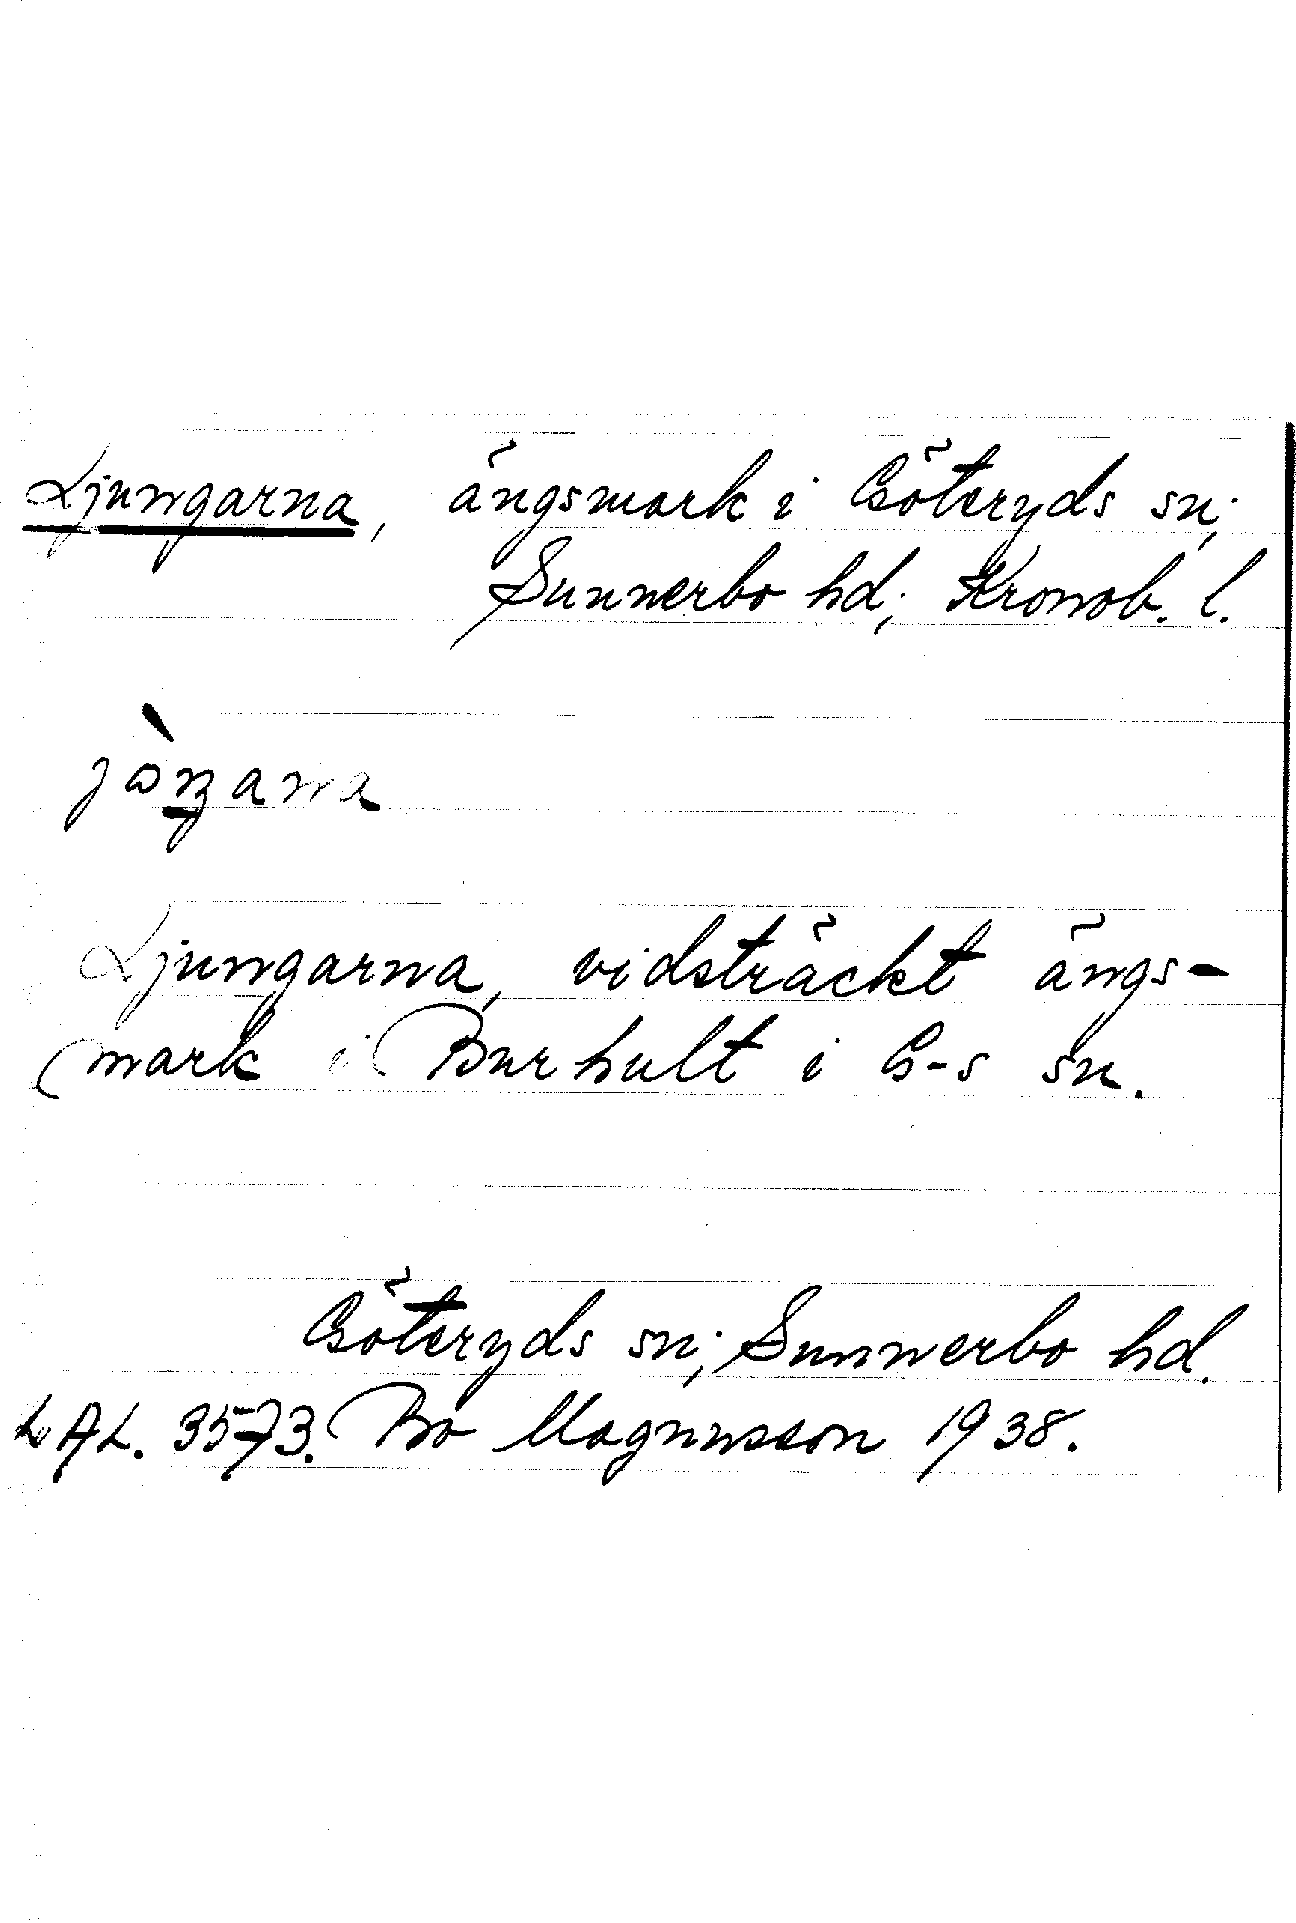 Ljungarna, ängsmark i Göteryds sn;
Sunnerbo hd; Kronob. l.
Ljungarna, vidsträckt ängs-
mark i Burhult i G-s sn.
Göteryds sn; Sunnerbo hd.
LAL. 3573. Bo Magnusson 1938.